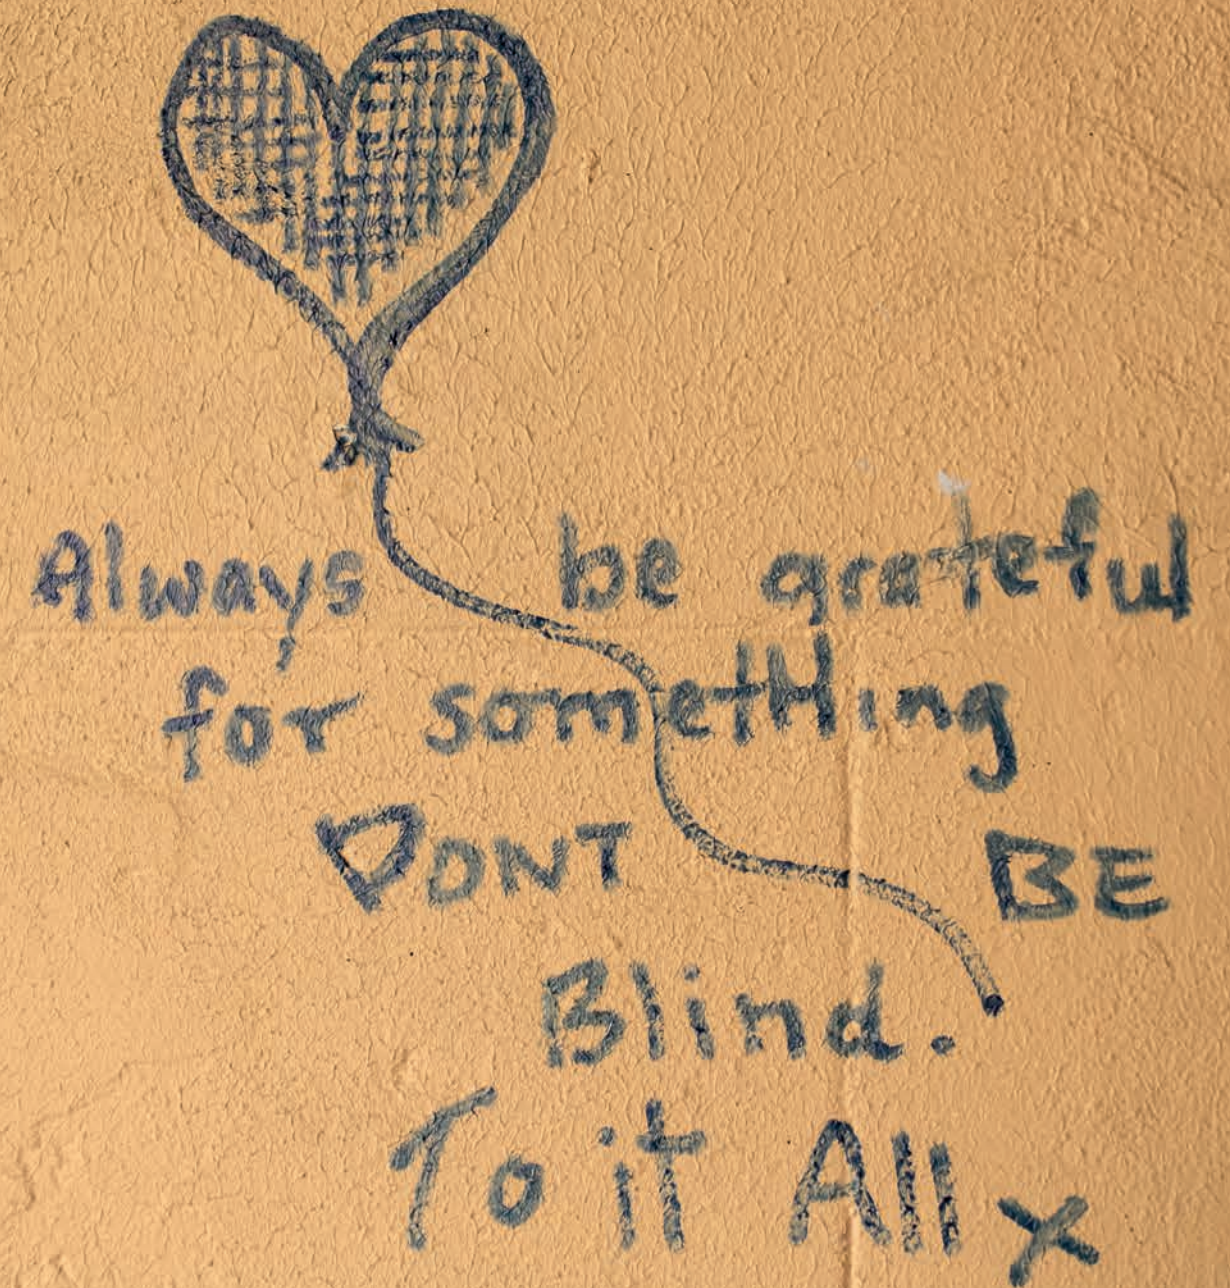 Always be grateful
for sometHing
DONT BE
Blind.
To it All x